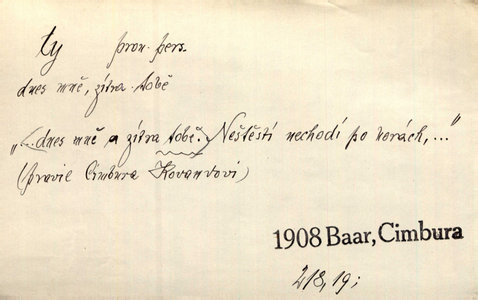 ty pron. pers.
dnes mně, zítra tobě
„(..dnes mně a zítra tobě. Neštěstí nechodí po horách,..."
(pravil Cimbura Kovandovi)
1908 Baar, Cimbura
218, 19;